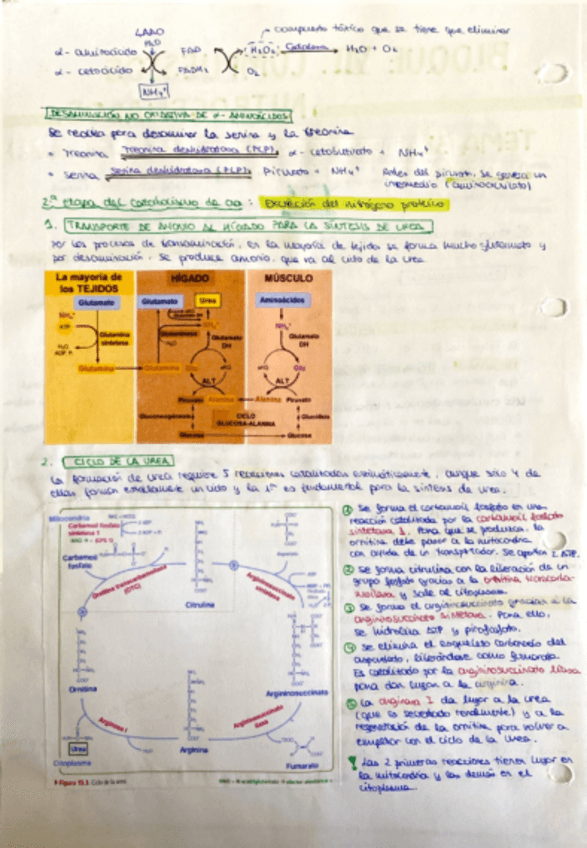 LAAO
H₂O
compuesto tóxico que se tiene que eliminar
α- aminoácido FAD H₂O₂ Catalasa H₂O + O₂
α- cetoácido FADH₂ O₂
NH₄⁺
DESAMINACIÓN NO OXIDATIVA DE α- AMINOÁCIDOS
Se realiza para desaminar la serina y la treonina
• Treonina treonina deshidratasa (PLP) α- cetobutirato + NH₄⁺
• Serina serina deshidratasa (PLP) Piruvato + NH₄⁺ Antes del piruvato, se genera un
intermedio (aminoacrilato)
2ª etapa del catabolismo de aa: Excreción del nitrógeno proteico
1. TRANSPORTE DE AMONIO AL HÍGADO PARA LA SÍNTESIS DE UREA
Por los procesos de transaminación, en la mayoría de tejidos se forma mucho glutamato y
por desaminación, se produce amonio, que va al ciclo de la urea.
La mayoría de
los TEJIDOS
HÍGADO
MÚSCULO
Glutamato
Glutamato
Urea
Aminoácidos
NH₄⁺
ATP
Glutamina
sintetasa
H₂O
Glutaminasa
NH₄⁺
NH₄⁺
Glutamato
DH
Glutamato
DH
Glutamina
Glutamina
Glu
αKG
αKG
Glu
ALT
ALT
Piruvato
Alanina
Alanina
Piruvato
Gluconeogénesis
CICLO
GLUCOSA-ALANINA
Glucólisis
Glucosa
Glucosa
2. CICLO DE LA UREA
La formación de urea requiere 5 reacciones catalizadas enzimáticamente, aunque solo 4 de
ellas forman realmente un ciclo y la 1ª es fundamental para la síntesis de urea.
Mitocondria
Carbamoil fosfato
sintetasa 1
Carbamoil
fosfato
Ornitina transcarbamilasa
(OTC)
Citrulina
Aspartato
Argininosuccinato
sintetasa
Argininosuccinato
Argininosuccinato
liasa
Fumarato
Arginina
Arginasa I
H₂O
Ornitina
Urea
Citoplasma
Figura 15.5 Ciclo de la urea
① Se forma el carbamoil fosfato en una
reacción catalizada por la carbamoil fosfato
sintetasa 1. Para que se produzca, la
ornitina debe pasar a la mitocondria
con ayuda de un transportador. Se gastan 2 ATP.
② Se forma citrulina con la liberación de un
grupo fosfato gracias a la ornitina transcarba-
milasa y sale al citoplasma.
③ Se forma el argininosuccinato gracias a la
argininosuccinato sintetasa. Para ello,
se hidroliza ATP y pirofosfato.
④ Se elimina el esqueleto carbonado del
aspartato, liberándose como fumarato.
Es catalizado por la argininosuccinato liasa
para dar lugar a la arginina.
⑤ La arginasa I da lugar a la urea
(que es secretada renalmente) y a la
regeneración de la ornitina para volver a
empezar con el ciclo de la urea.
! Las 2 primeras reacciones tienen lugar en
la mitocondria y las demás en el
citoplasma.